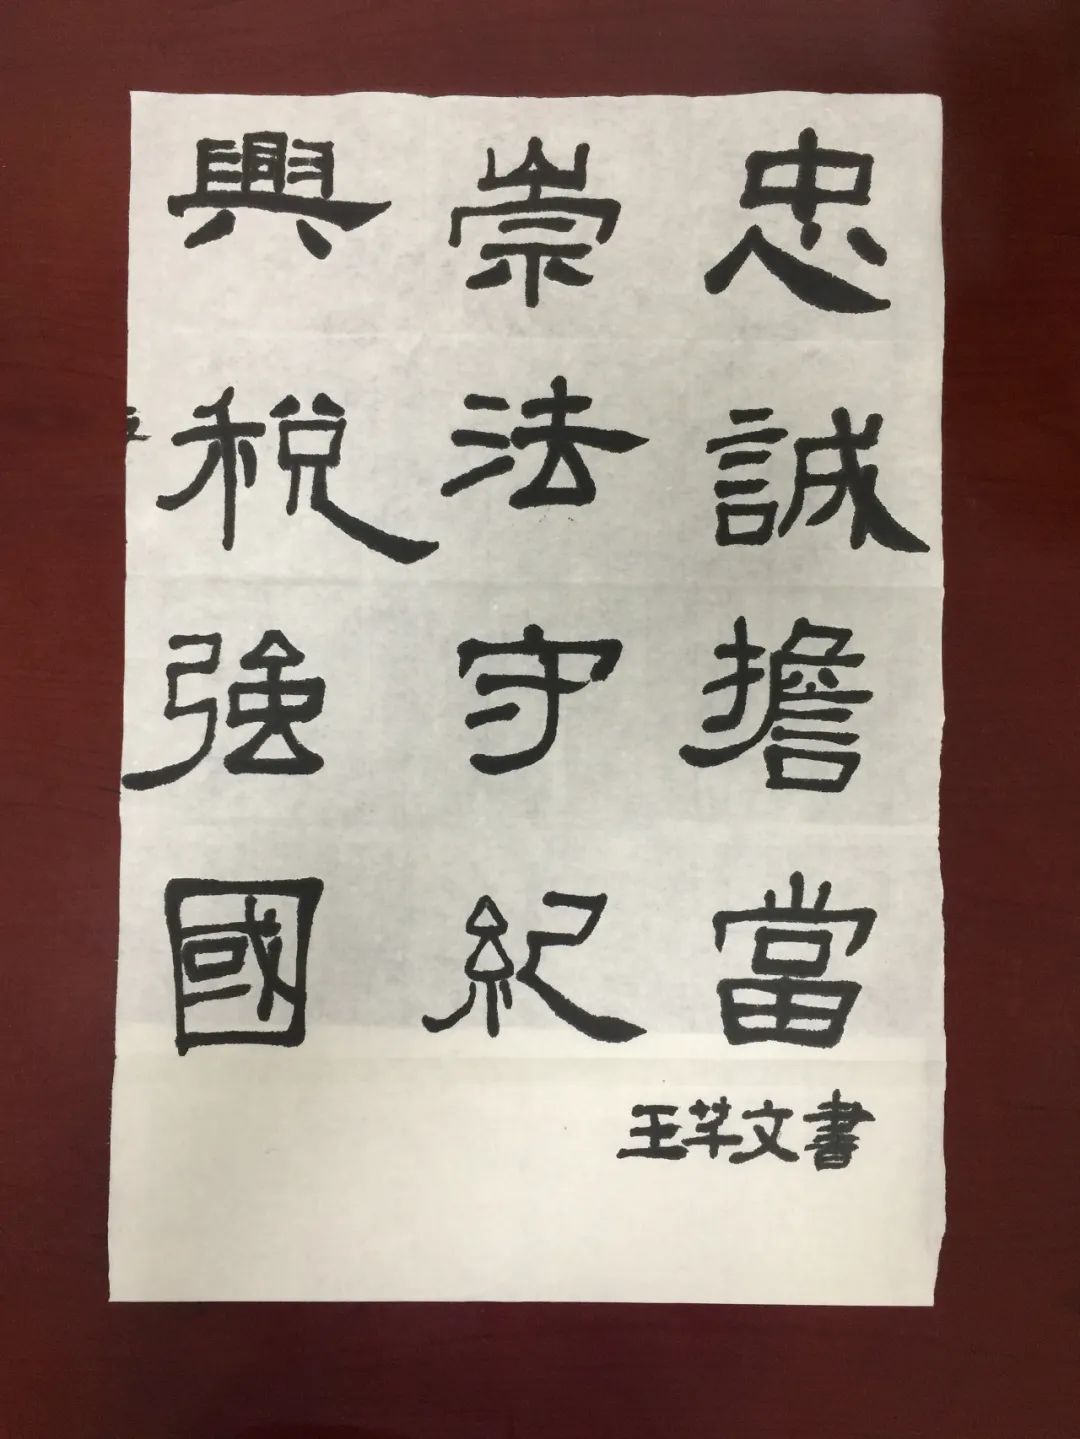 忠誠擔當
崇法守紀
興税強國
王芊文書